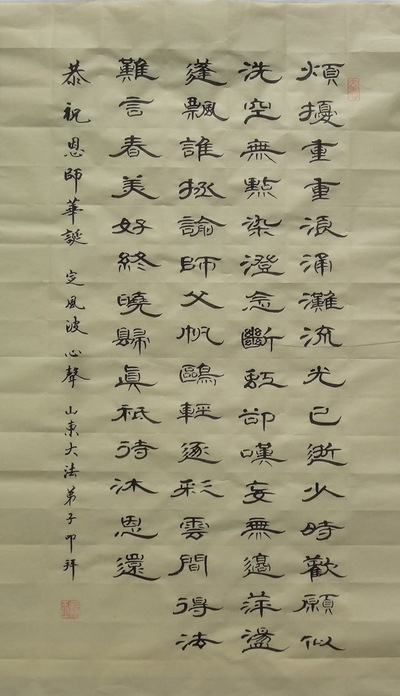 煩擾重重浪涌灘流光已逝少時歡願似
洗空無點染澄念斷卻嘆妄無邊萍盪
蓬飄誰拯諭師父帆鷗輕逐彩雲間得法
難言春美好終曉歸真祇待沐恩還
恭祝恩師華誕 定風波 心聲 山東大法弟子叩拜